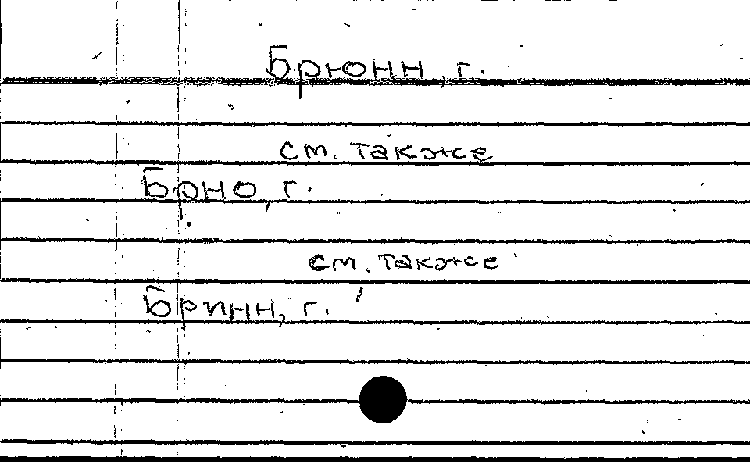 Брюнн, г.
см. также
Брно, г.
см. также
Бринн, г.